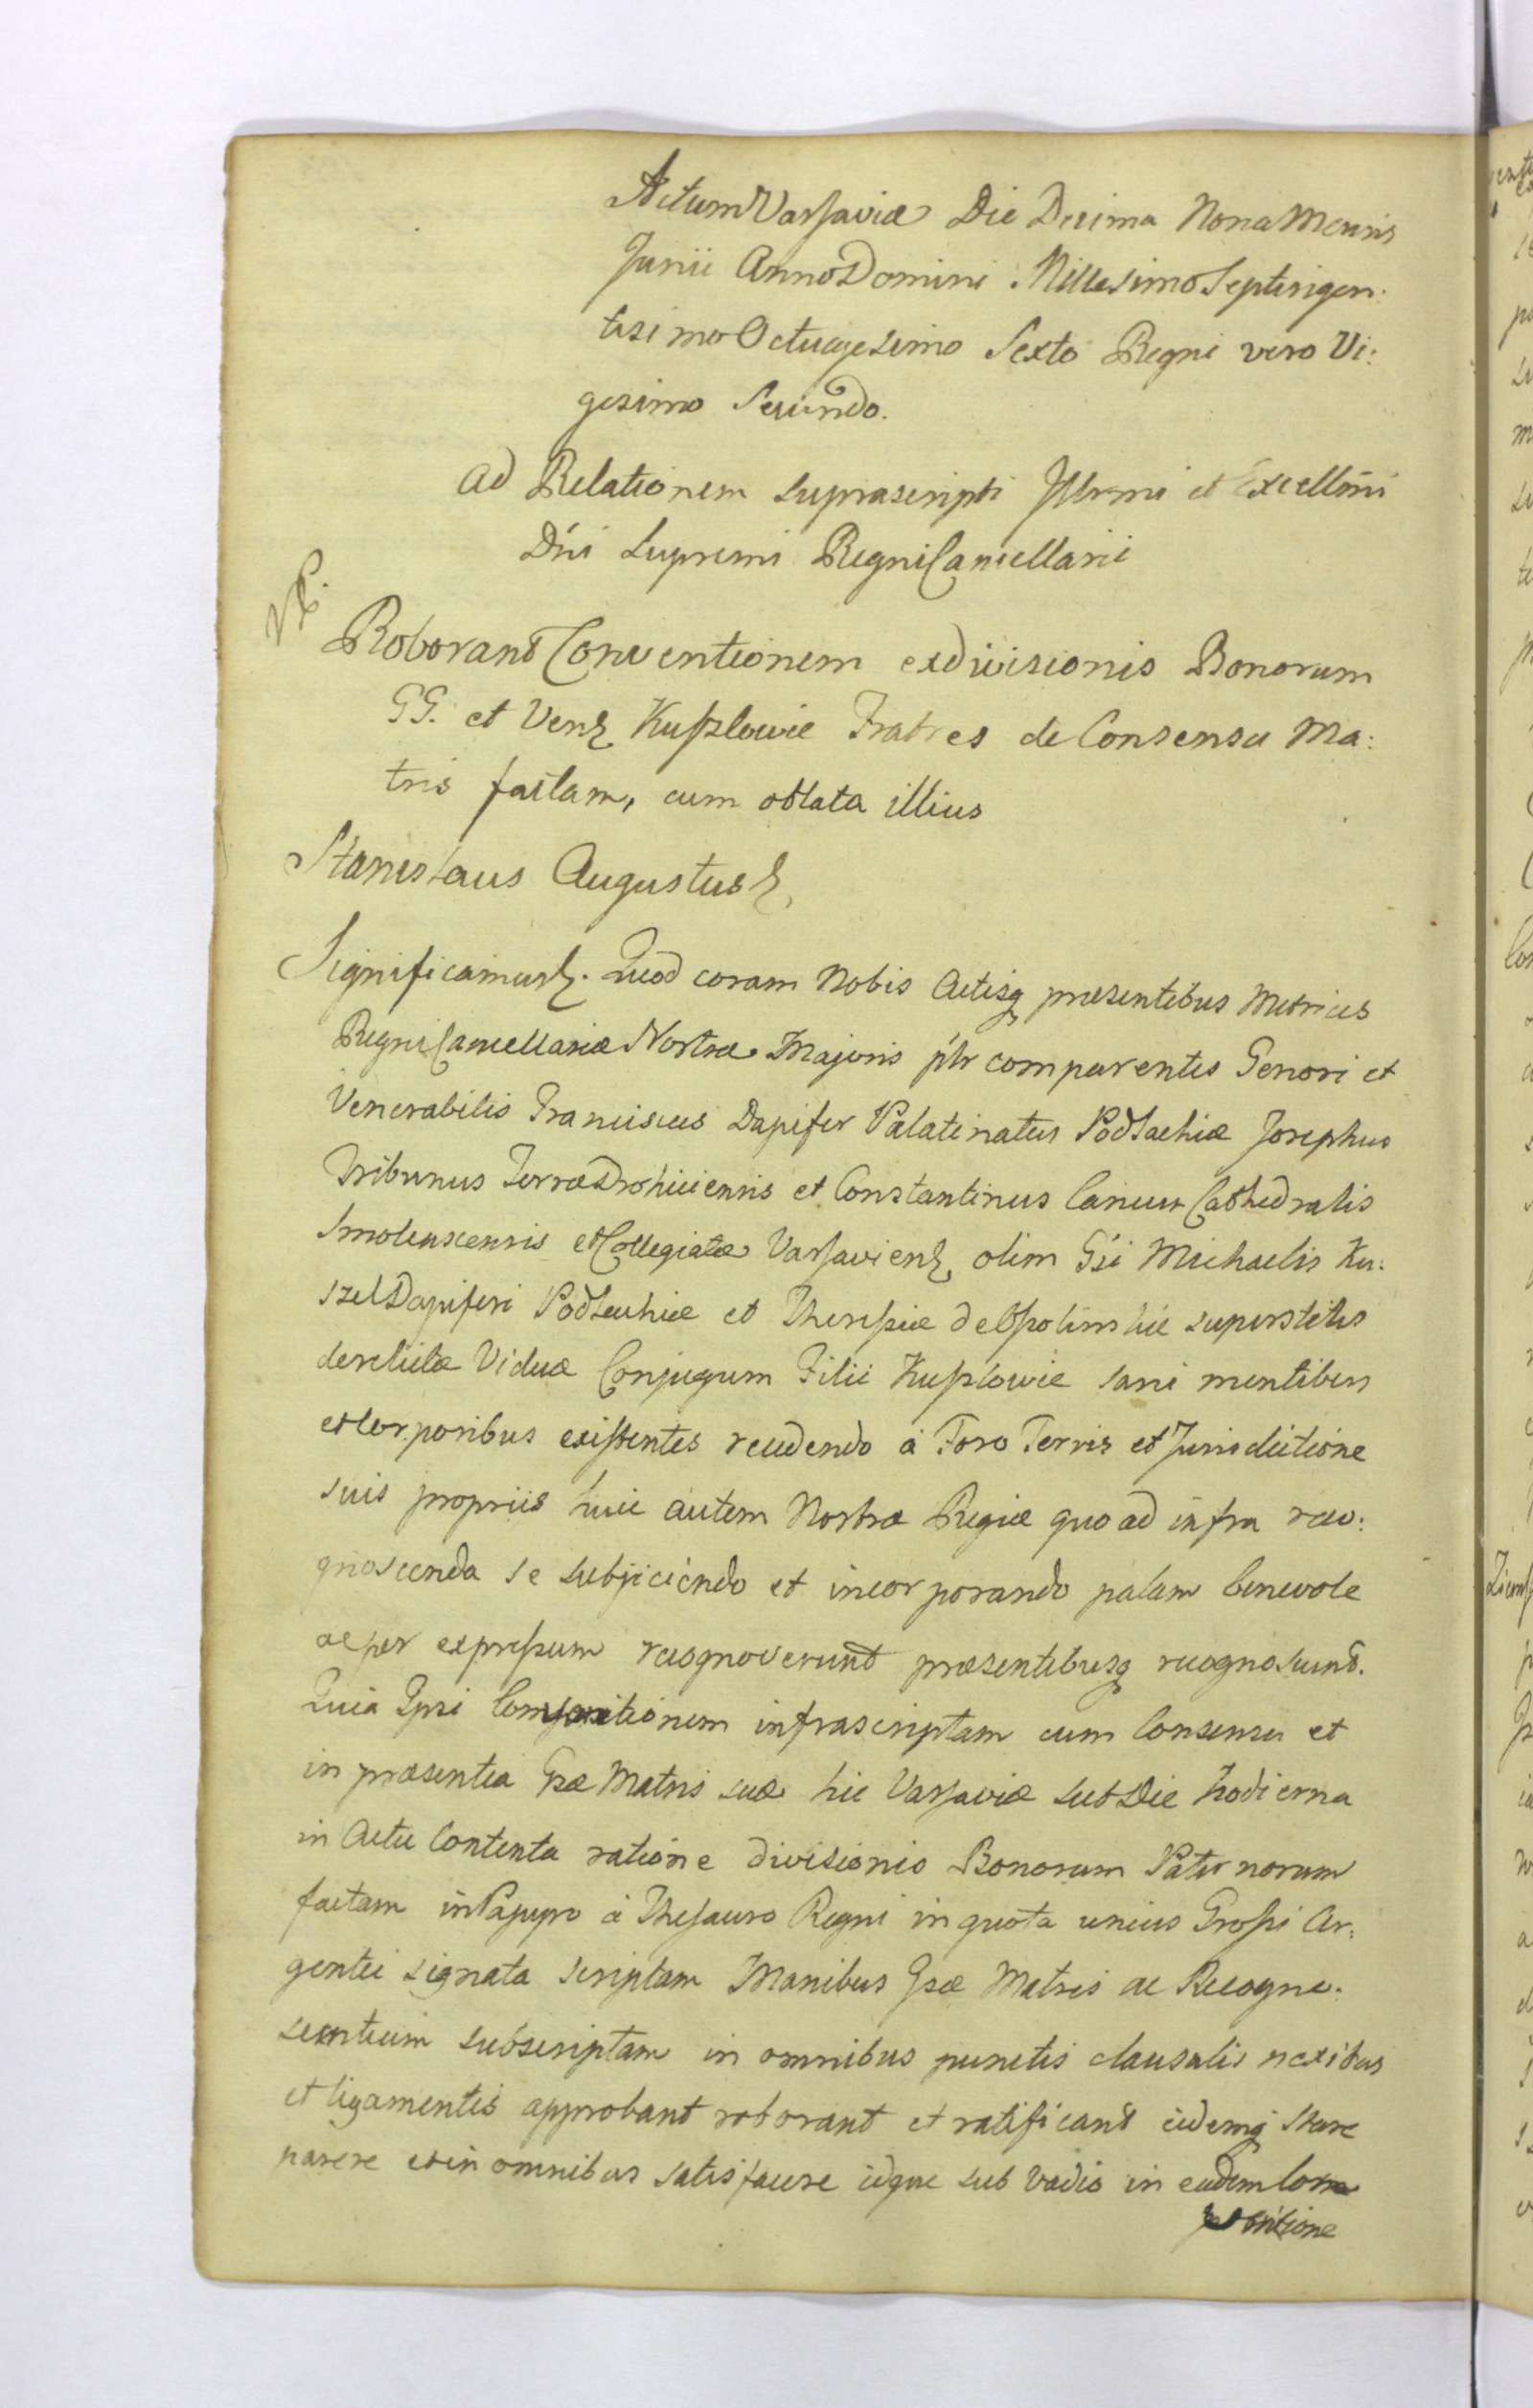 Actum Varsaviæ Die Decima Nona Mensis
Junii Anno Domini Millesimo Septingen:
tesimo Octuagesimo Sexto Regni vero Vi:
gesimo Secundo.
Ad Relationem suprascripti Illrmi et Excellmi
Dni Supremi Regni Cancellarii
Roborans Conventionem exdivisionis Bonorum
GG. et Ven Kuszlowie Fratres de Consensu Ma:
tris factam, cum oblata illius
Stanislaus Augustus
Significamus. Quod coram Nobis Actisq præsentibus Metrices
Regni Cancellariæ Nostræ Majoris pltr comparentes Generi et
Venerabilis Franciscus Dapifer Palatinatus Podlachiæ Josephus
Tribunus Terræ Drohiciensis et Constantinus Cancus Cathedralis
Smolenscensis et Collegiatæ Varsavien olim Gsi Michaelis Ku:
szel Dapiferi Podlachiæ et Theressiæ de superstitis
derelictæ Viduæ Conjugum Filii Kuszlowie sani mentibus
et Corporibus existentes recedendo à Foro Terris et Jurisdictione
suis propriis huic autem Nostræ Regiæ quo ad infra reco:
gnoscenda se subjiciendo et incorporando palam benevole
ac per expressum recognoverunt præsentibusq recognoscunt.
Quia Ipsi Compositionem infrascriptam cum Consensu et
in præsentia Gsæ Matris suæ hic Varsaviæ sub Die hodierna
in Actu Contenta ratione divisionis Bonorum Paternorum
factam in Papyro à Thesauro Regni in quota unius Grossi Ar:
gentei signata scriptam Manibus Gsæ Matris ac Recogno:
scentium subscriptam in omnibus punctis clausulis nexibus
et ligamentis approbant roborant et ratificant eidemq stare
parere et in omnibus satisfacere idque sub Vadio in eadem Com
positione